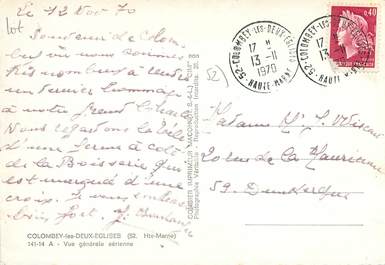 Le 12 Nov 70
lot
Souvenir de Colom-
bey où nous sommes
très nombreux à rendre
un dernier hommage
à notre grand
Nous regardons la
d'une ferme à côté
de la Boisserie qui
est marquée d'une
croix. Je vous embrasse
bien fort.
COLOMBEY-les-DEUX-EGLISES (52. Hte-Marne)
141-14 A - Vue générale aérienne
COMBIER IMPRIMEUR MACON
Photographie Véritable - Reproduction Interdite
52-COLOMBEY-LES-DEUX-EGLISES
17 H
13-11
1970
HAUTE-MARNE
52-COLOMBEY-LES-DEUX-EGLISES
17 H
13-11
1970
HAUTE-MARNE
0,40
52
Madame
20 rue de la
59. Dunkerque